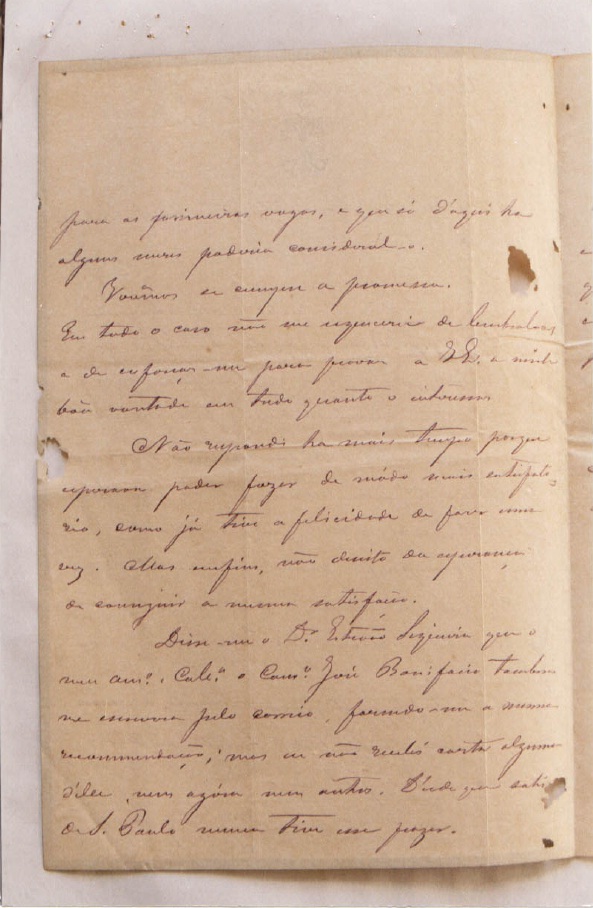 para as primeiras vagas, e que só d'aqui ha
alguns mezes poderia consideral-o.
Vejâmos se cumpre a promessa.
Em todo o caso não me esquecerei de lembral-as
e de esforçar-me para provar a V.Exª. a minha
bôa vontade em tudo quanto o interessar.
Não respondi ha mais tempo porque
esperava poder fazer de módo mais satisfato-
rio, como já tive a felicidade de fazer uma
vez. Mas emfim, não desisto da esperança
de conseguir a mesma satisfação.
Disse-me o Dr. Estevão que o
meu amº. e Colª. o Consº. José Bonifacio tambem
me escrevera pelo correio, fazendo-me a mesma
recommendação; mas eu não recebi carta alguma
d'elle, nem agóra nem antes. Désde que sahi
de S. Paulo nunca tive esse prazer.